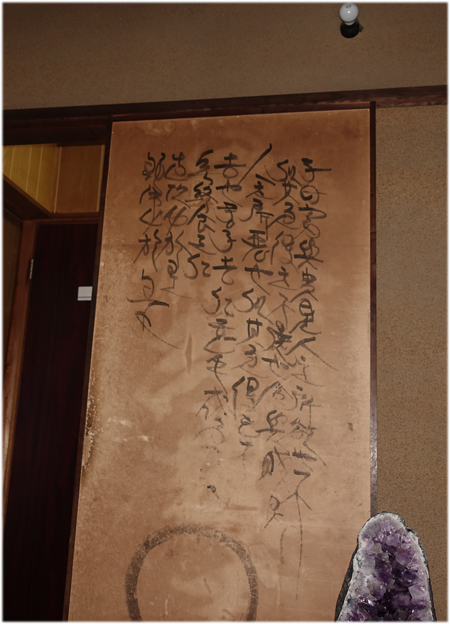 子曰富與貴是人之所欲也不
以其道得之不處也貧與賤是
人之所惡也不以其道得之不
去也君子去仁惡乎成名
無終食 仁
造次必於是
顛沛必於是